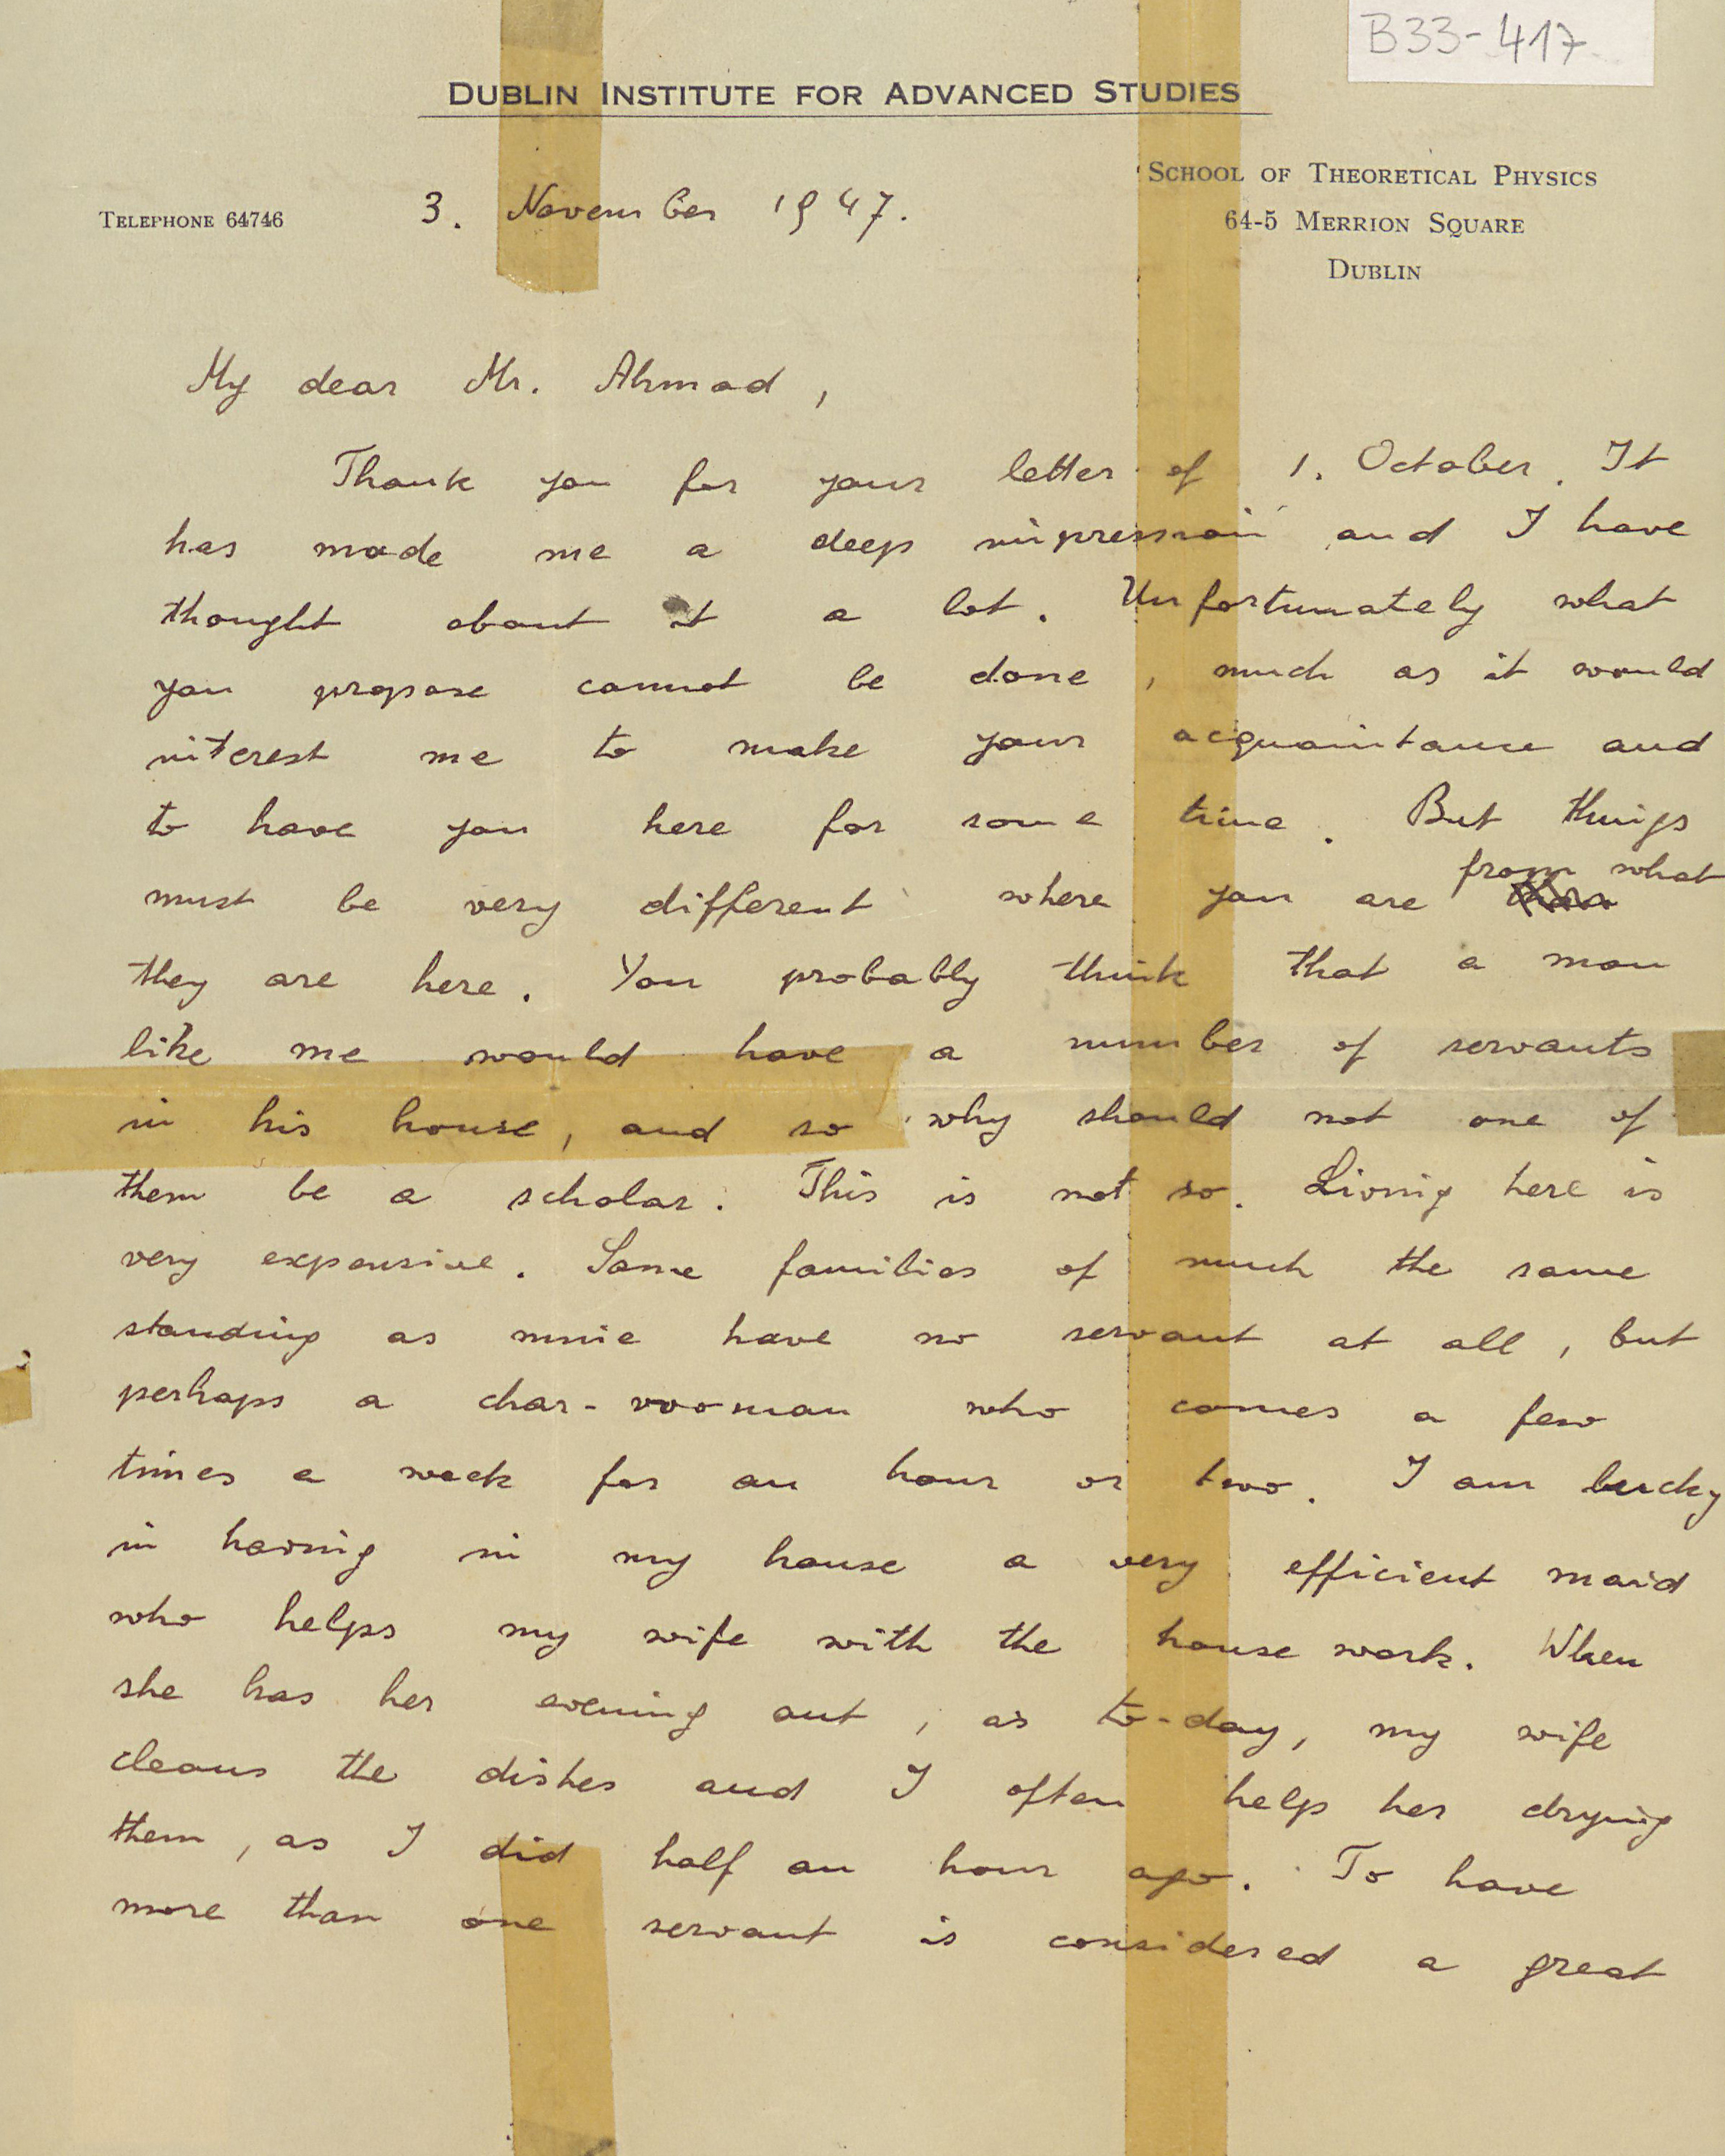 B33-417
DUBLIN INSTITUTE FOR ADVANCED STUDIES
SCHOOL OF THEORETICAL PHYSICS
64-5 MERRION SQUARE
DUBLIN
TELEPHONE 64746
3. November 1947.
My dear Mr. Ahmad,
Thank you for your letter of 1. October. It
has made me a deep impression and I have
thought about it a lot. Unfortunately what
you propose cannot be done, much as it would
interest me to make your acquaintance and
to have you here for some time. But things
from what
must be very different where you are
they are here. You probably think that a man
like me would have a number of servants
in his house, and so why should not one of
them be a scholar. This is not so. Living here is
very expensive. Some families of much the same
standing as mine have no servant at all, but
perhaps a char-wooman who comes a few
times a week for an hour or two. I am lucky
in having in my house a very efficient maid
who helps my wife with the house work. When
she has her evening out, as to-day, my wife
cleans the dishes and I often help her drying
them, as I did half an hour ago. To have
more than one servant is considered a great